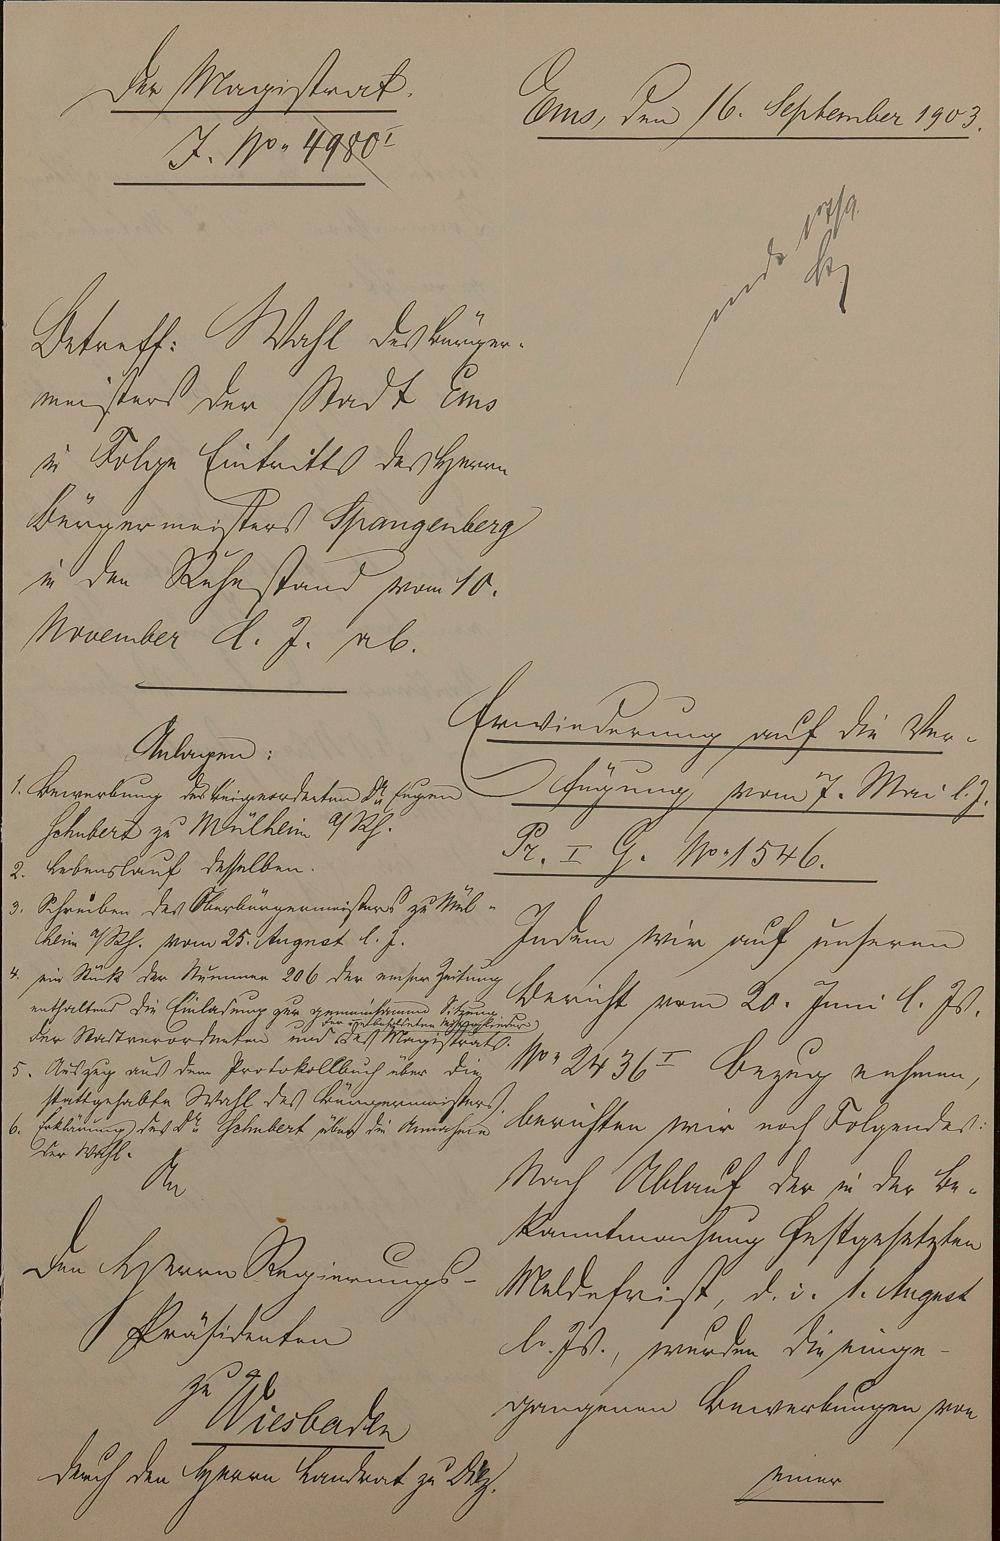 Der Magistrat.
J. No. 4980 I
Ems, den 16. September 1903.
17/9.
Betreff: Wahl des Bürger-
meisters der Stadt Ems
in Folge Eintritts des Herrn
Bürgermeisters Spangenberg
in den Ruhestand vom 10.
November d. J. ab.
Anlagen:
1. Bewerbung des Beigeordneten Dr. Eugen
Schubert zu Mülheim a/Rh.
2. Lebenslauf desselben.
3. Schreiben des Oberbürgermeisters zu Mül-
heim a/Rh. vom 25. August l. J.
4. ein Stück der Nummer 206 der Emser Zeitung
enthaltend die Einladung zur gemeinsamen Sitzung
der Stadtverordneten und der unbesoldeten Mitglieder des Magistrats.
5. Auszug aus dem Protokollbuch über die
stattgehabte Wahl des Bürgermeisters.
6. Erklärung des Dr. Schubert über die Annahme
der Wahl.
An
den Herrn Regierungs-
Präsidenten
zu
Wiesbaden
durch den Herrn Landrat zu Diez.
Erwiederung auf die Ver-
fügung vom 7. Mai l. J.
Pr. I G. No. 1546.
Indem wir auf unseren
Bericht vom 20. Juni l. Js.
No. 2436 I Bezug nehmen,
berichten wir noch Folgendes:
Nach Ablauf der in der Be-
kanntmachung festgesetzten
Meldefrist, d. i. 1. August
l. Js., wurden die einge-
gangenen Bewerbungen von
einer